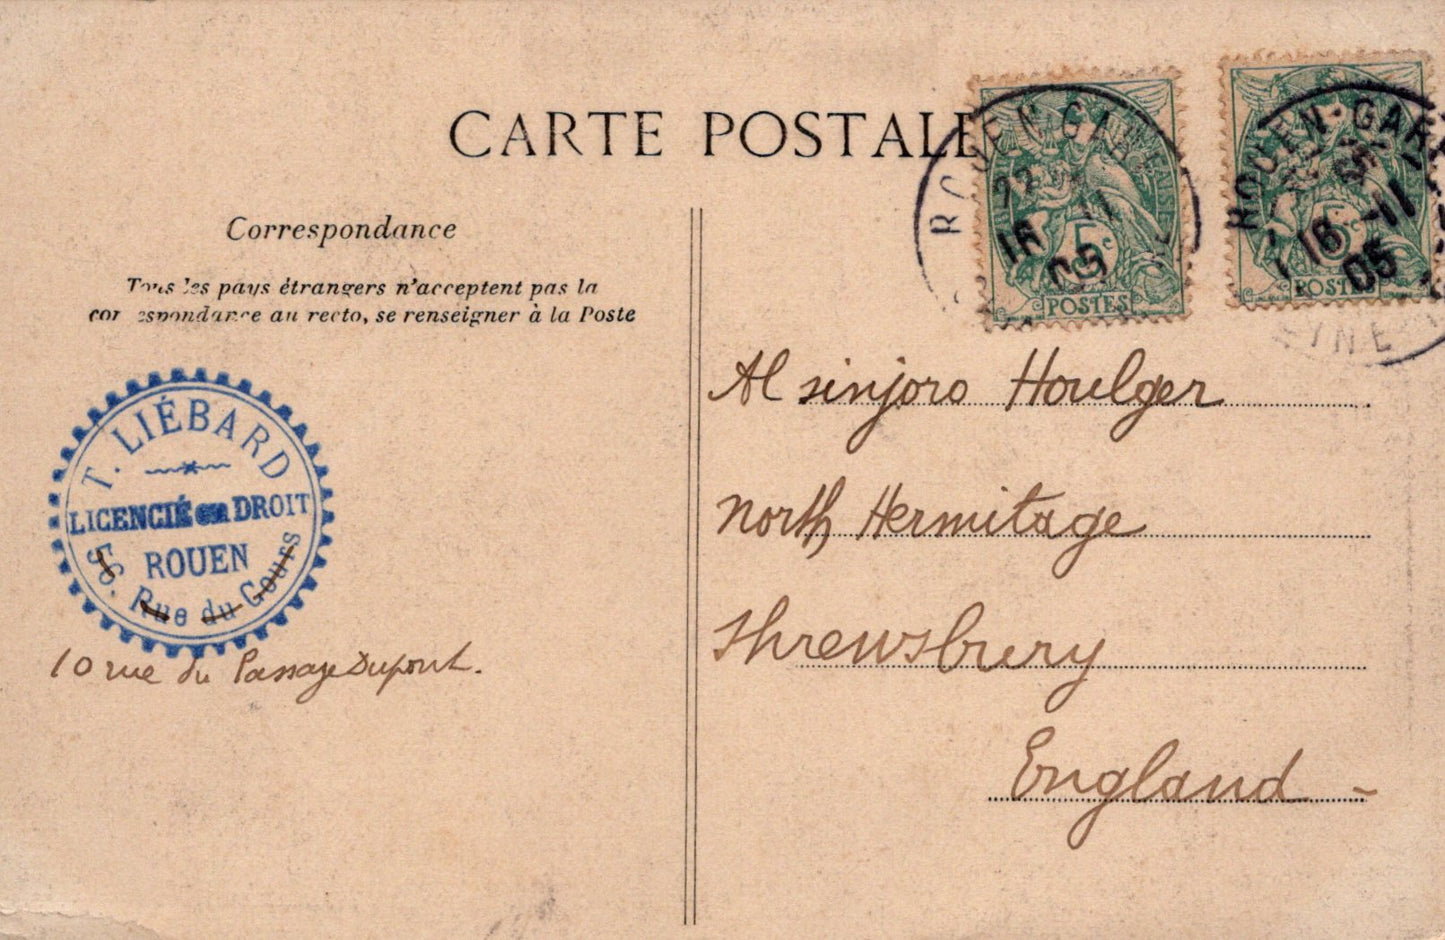 CARTE POSTALE
Correspondance
Tous les pays étrangers n'acceptent pas la
correspondance au recto, se renseigner à la Poste
T. LIÉBARD
LICENCIÉ en DROIT
ROUEN
56. Rue du Cours
10 rue du Passage Dupont.
ROUEN-GARE
22
16 11
05
5c
POSTES
ROUEN-GARE
16 -11
05
5c
POSTES
Al sinjoro Houlger
North Hermitage
Shrewsbury
England